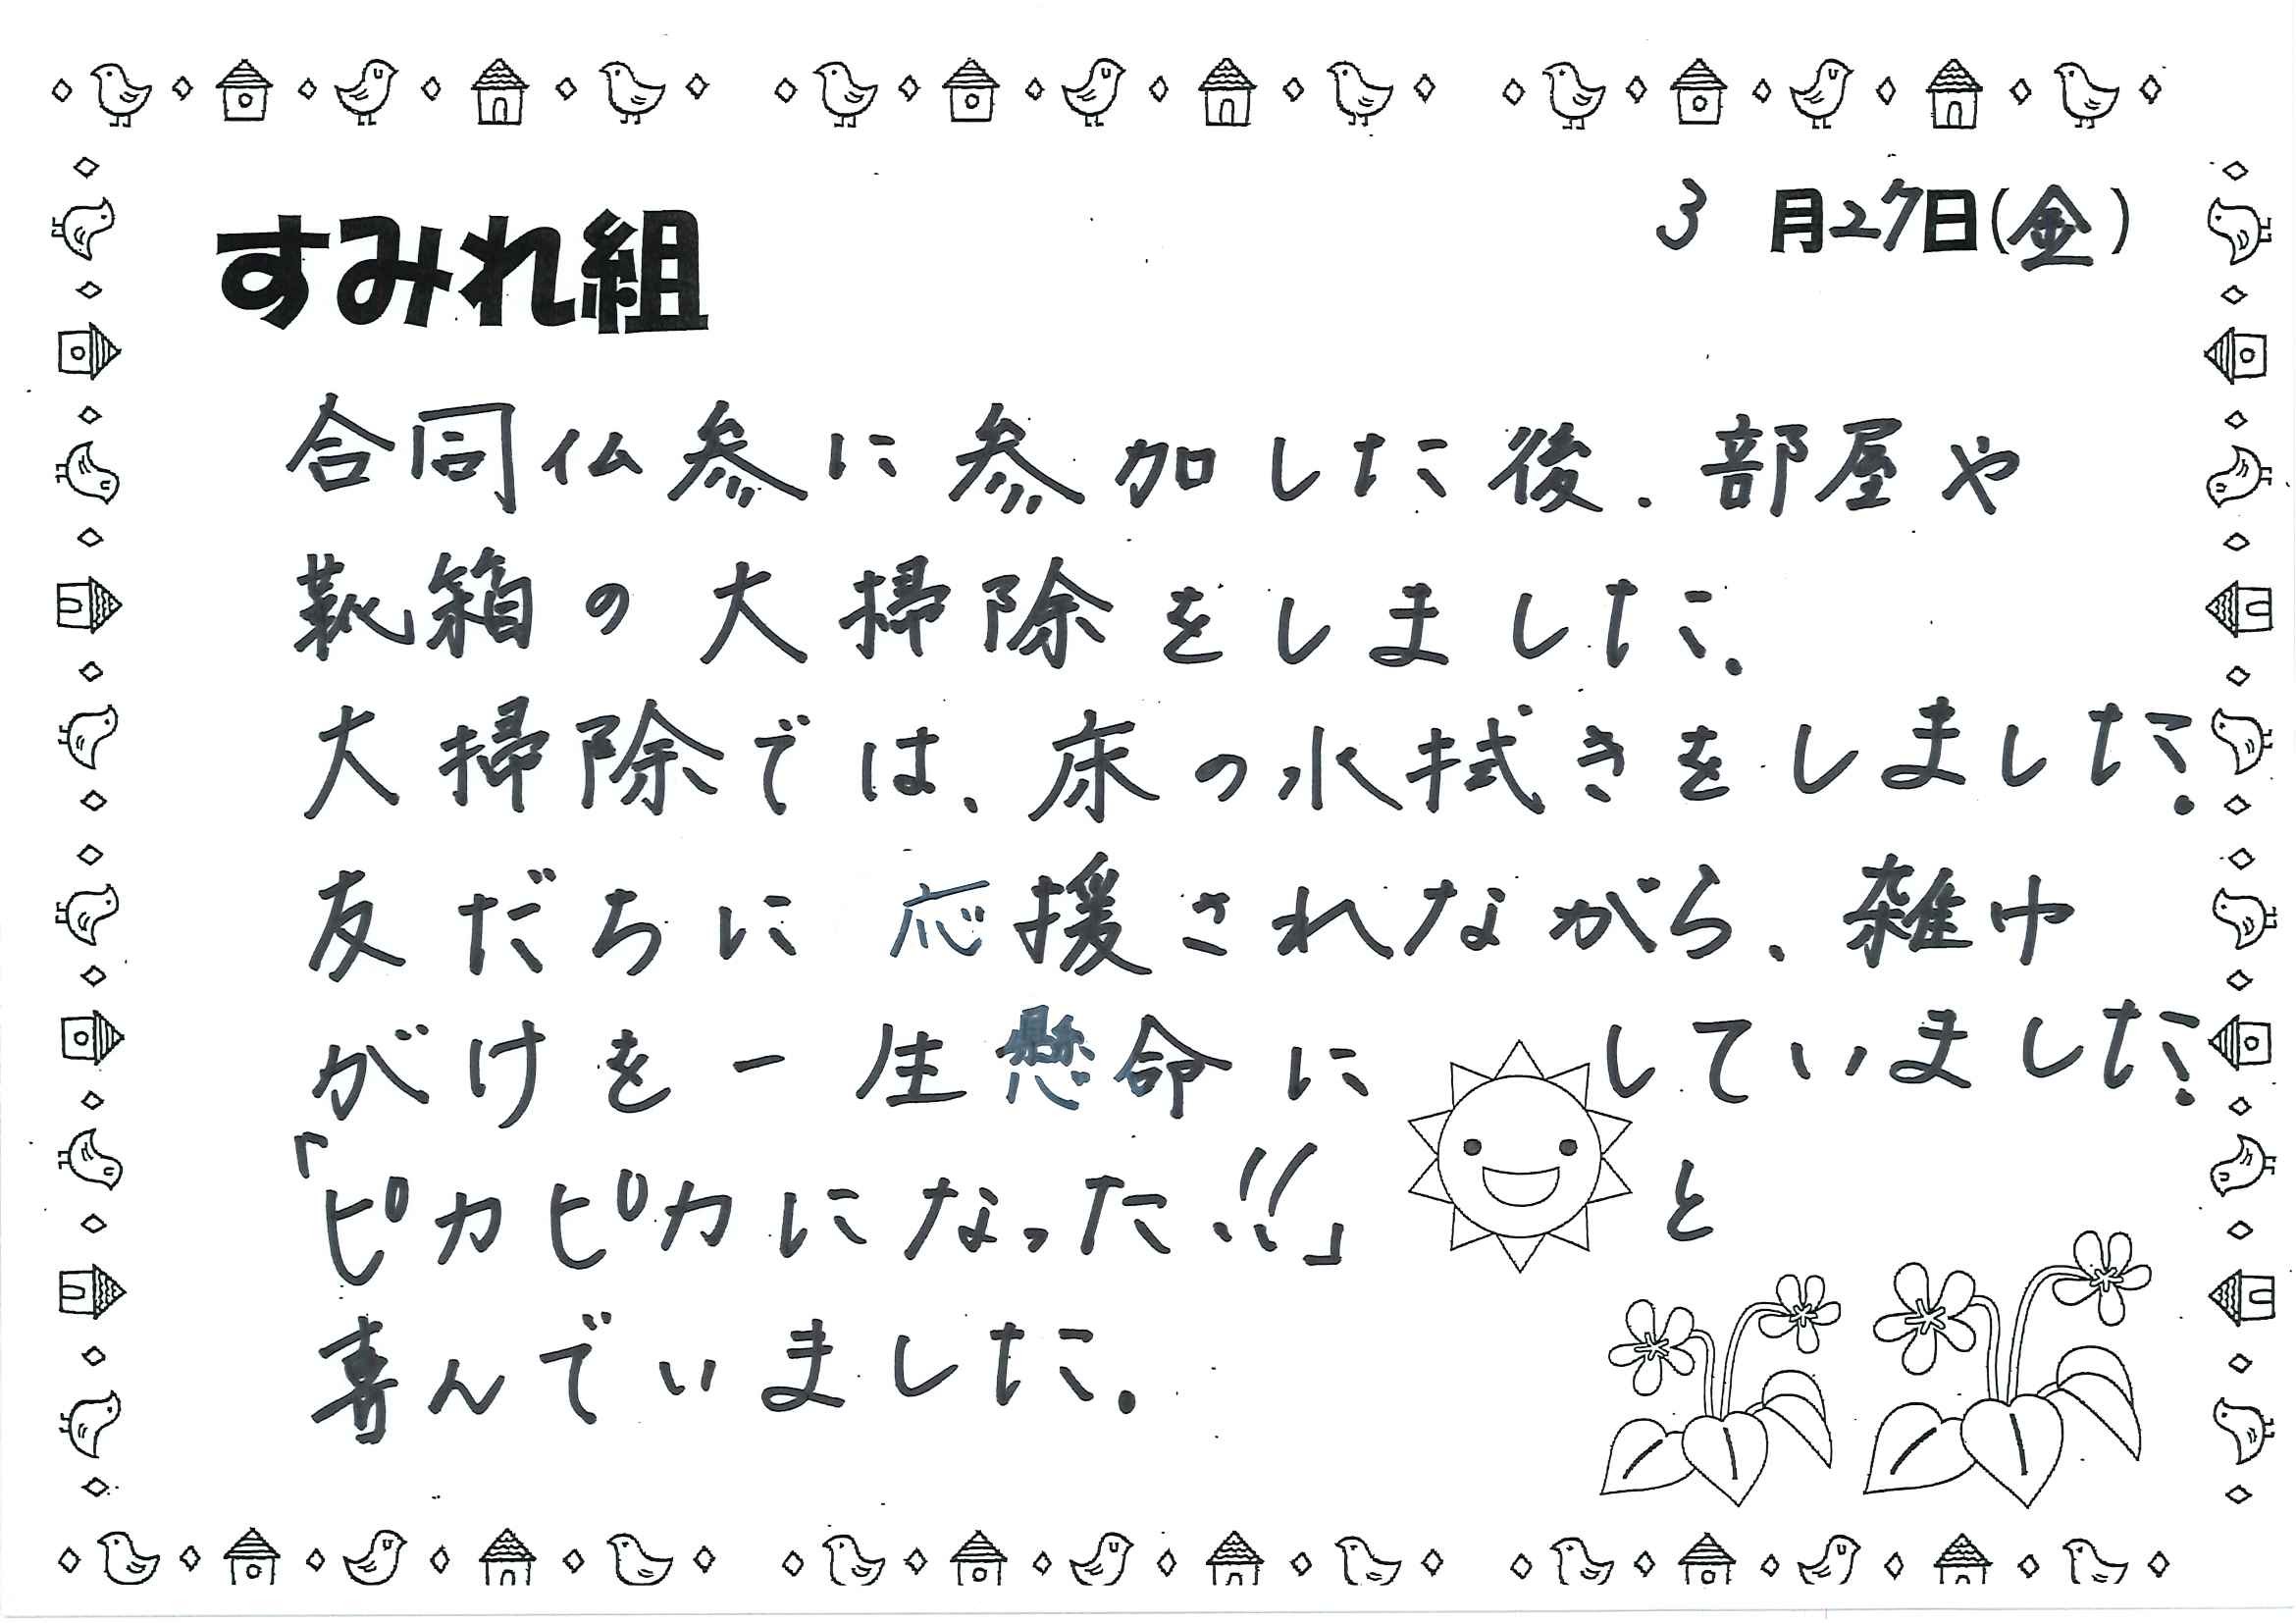 3月27日(金)
すみれ組
合同仏参に参加した後、部屋や
靴箱の大掃除をしました。
大掃除では、床の水拭きをしました。
友だちに応援されながら、雑巾
がけを一生懸命にしていました。
「ピカピカになった!!」と
喜んでいました。